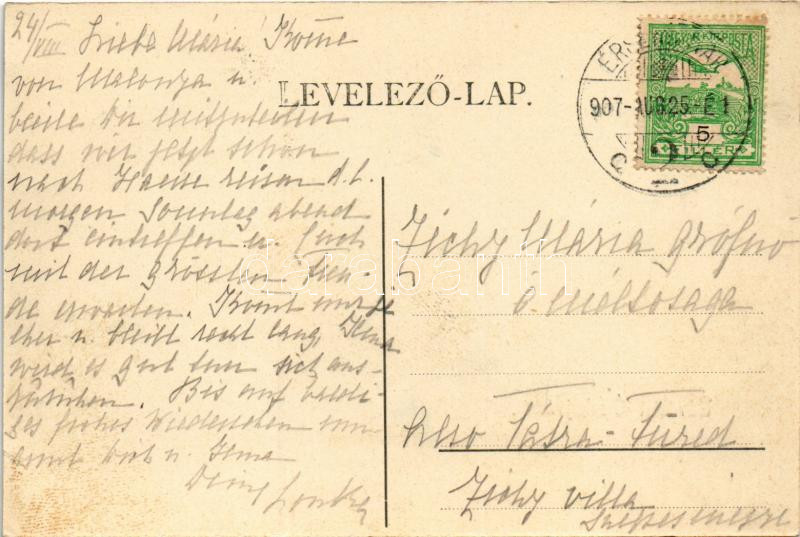 24/VIII Liebe Mária! Komme
von Malonya u.
beeile Dir mitzuteilen
dass wir jetzt schon
nach Hause reisen d.h.
morgen Sonntag abend
dort eintreffen u. Euch
mit der grössten Freu-
de erwarten. Komt nur je
eher u. bleibt recht lang, Ilma
wird es gut tun sich aus-
. Bis auf baldi-
ges frohes Wiedersehen um
armt Dich u. Ilma
Deine
LEVELEZŐ-LAP.
MAGYAR KIR. POSTA
5
FILLÉR
907-AUG.25-É1
Zichy Mária grófnő
ő méltósága
Alsó Tátra-Füred
Zichy villa
darabanth